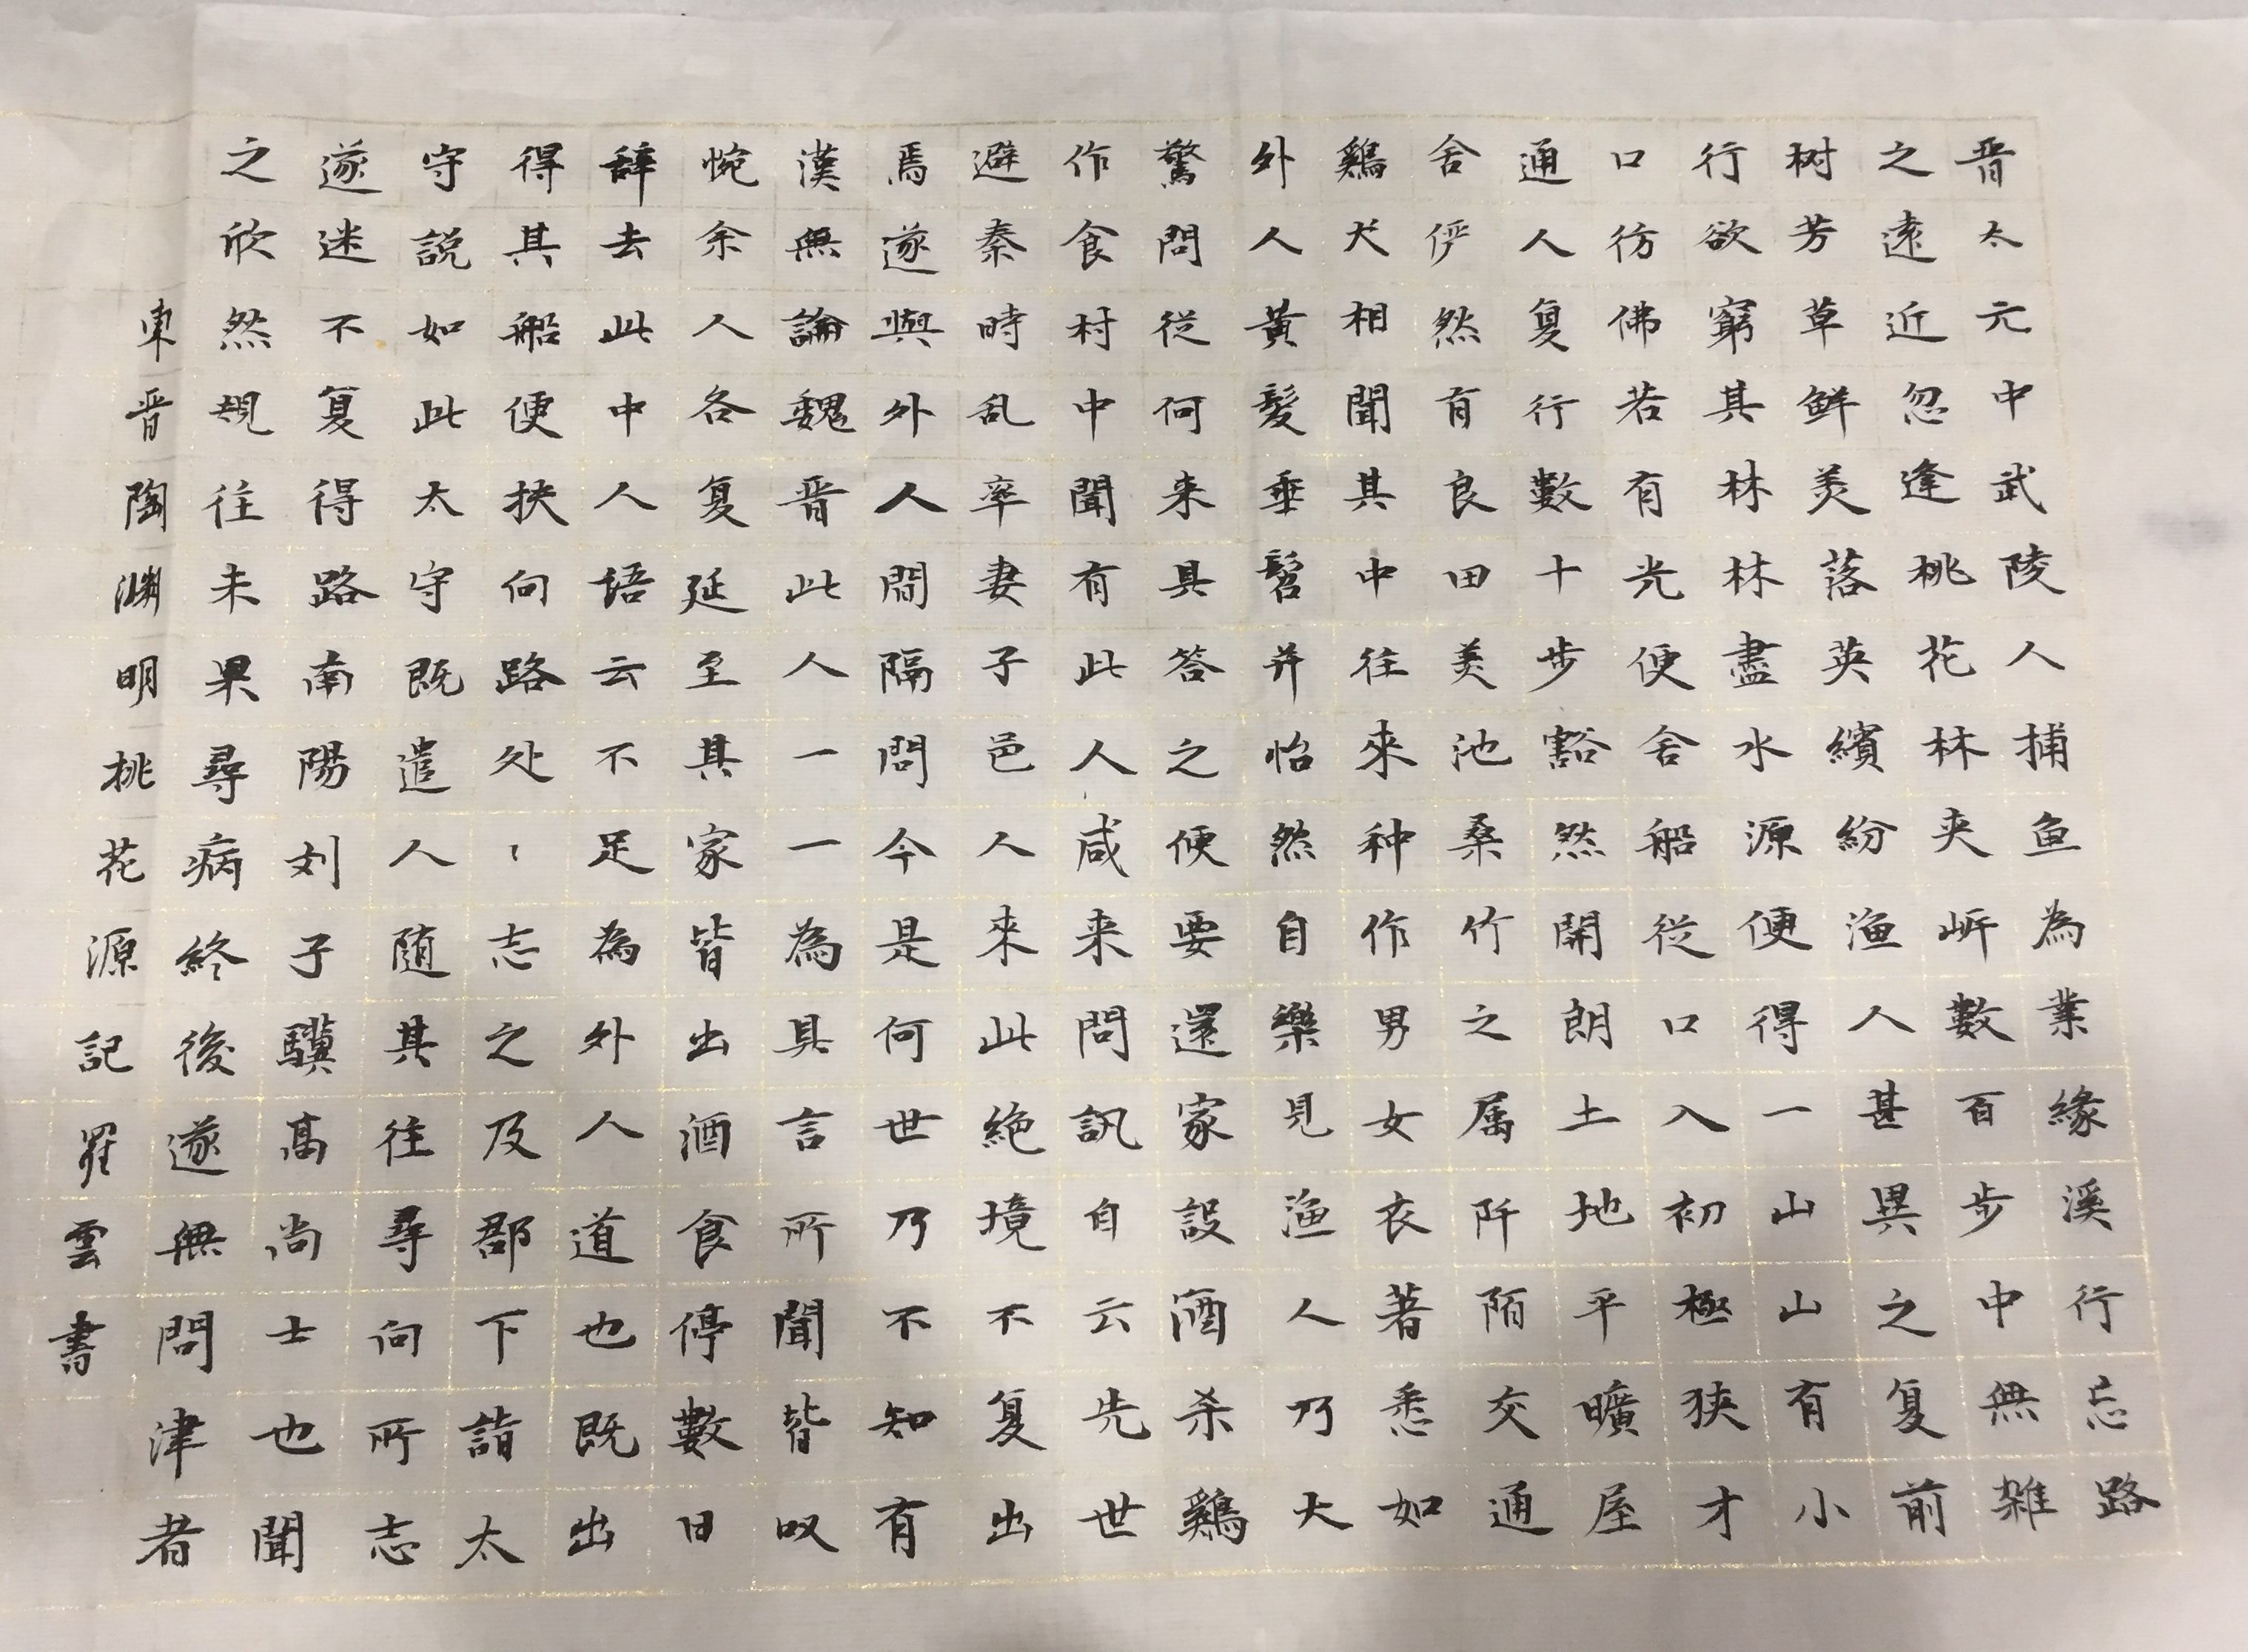 晋太元中武陵人捕鱼為業緣溪行忘路
之遠近忽逢桃花林夹岍數百步中無雑
树芳草鲜美落英繽紛渔人甚異之复前
行欲窮其林林盡水源便得一山山有小
口彷佛若有光便舍船従口入初極狭才
通人复行數十步豁然開朗土地平曠屋
舍俨然有良田美池桑竹之属阡陌交通
鷄犬相聞其中往來种作男女衣著悉如
外人黄髮垂髫并怡然自樂見渔人乃大
驚問従何来具答之便要還家設酒杀鷄
作食村中聞有此人咸来問訊自云先世
避秦時乱率妻子邑人來此絶境不复出
焉遂與外人間隔問今是何世乃不知有
漢無論魏晋此人一一為具言所聞皆叹
惋余人各复延至其家皆出酒食停數日
辞去此中人語云不足為外人道也既出
得其船便扶向路处丶志之及郡下詣太
守説如此太守既遣人随其往尋向所志
遂迷不复得路南陽刘子驥高尚士也聞
之欣然規往未果尋病終後遂無問津者
東晋陶渊明桃花源記羅雲書